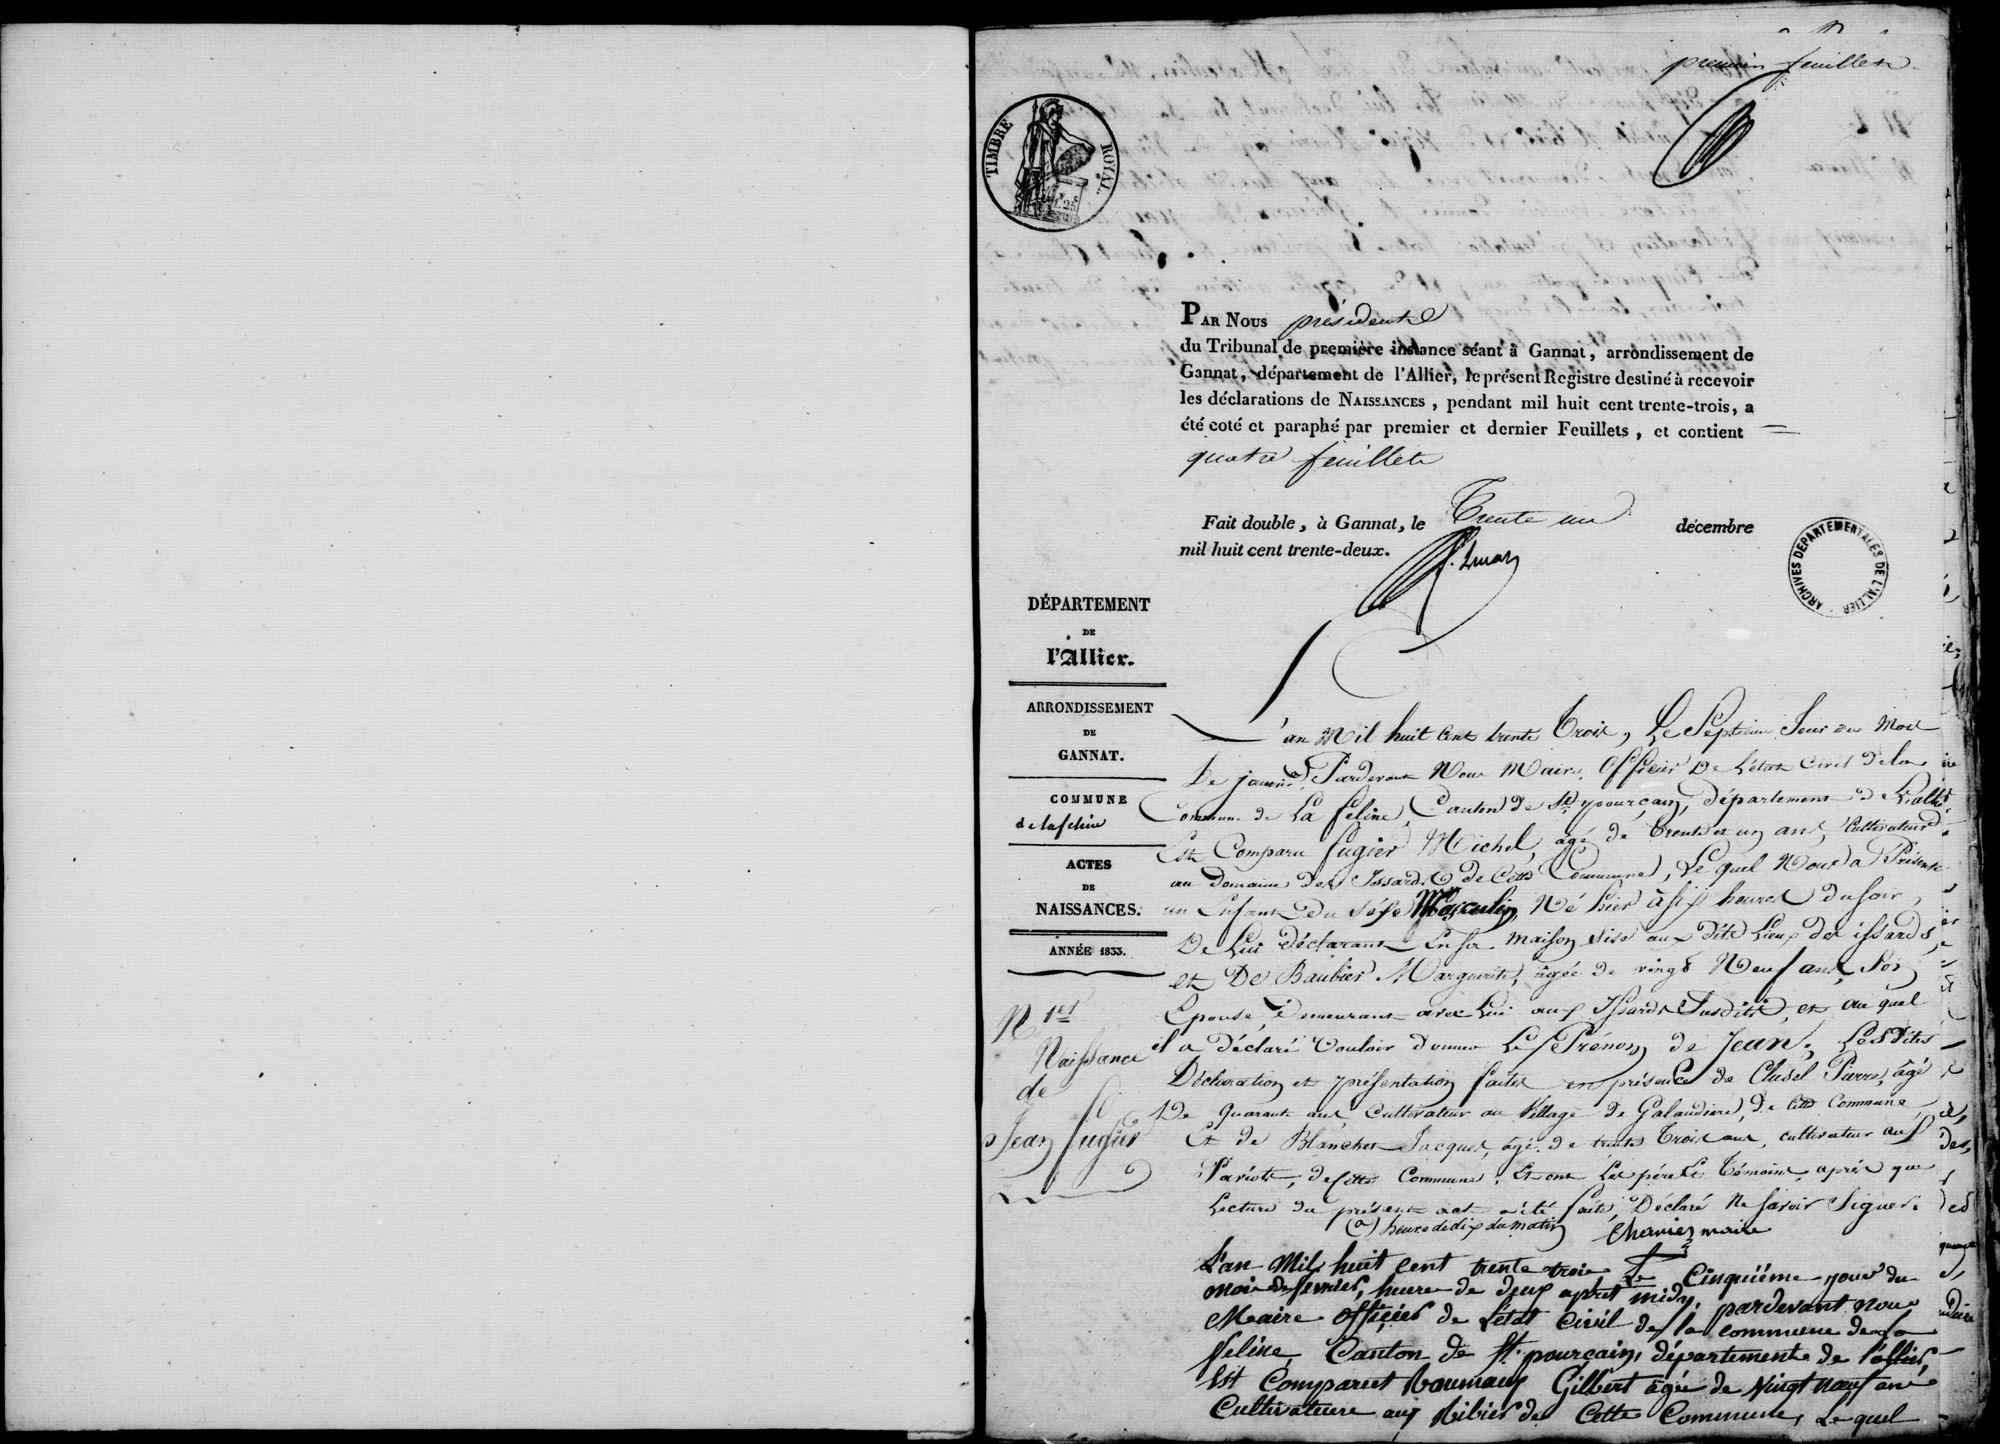 premier feuillet
TIMBRE ROYAL
PAR NOUS président
du Tribunal de première instance séant à Gannat, arrondissement de
Gannat, département de l'Allier, le présent Registre destiné à recevoir
les déclarations de NAISSANCES, pendant mil huit cent trente-trois, a
été coté et paraphé par premier et dernier Feuillets, et contient
quatre feuillets
Fait double, à Gannat, le Trente un décembre
mil huit cent trente-deux.
ARCHIVES DÉPARTEMENTALES DE L'ALLIER
DÉPARTEMENT
DE
l'Allier.
ARRONDISSEMENT
DE
GANNAT.
COMMUNE
de lafeline
ACTES
DE
NAISSANCES.
ANNÉE 1833.
N 1er
Naissance
de
Jean fugier
L'an Mil huit Cent trente Trois, Le Septieme Jour du Mois
De janvier (a) Pardevant Nous Maire Officier De L'état Civil dela
Commune de La feline, Canton de St pourçain, département de L'allier
Est Comparu fugier Michel, agé de Trente et un ans, Cultivateur
au Domaine des Issards de Cette Commune, Le quel Nous a Présenté
un Enfant Du séxe Masculin, Né hier à six heures du soir,
De Lui déclarant En sa maison sise aux dits Lieux des issards,
et De Baubier Marguerite, agée de vingt Neuf ans, Son
Epouse, Demeurant avec Lui aux Issards Susdits, et au quel
il a Déclaré Vouloir donner Le Prénom de Jean; Les Dites
Déclaration et présentation faites en présence de Clusel Pierre, agé
De quarante ans, Cultivateur au Village de Galaudière, de Cette Commune,
Et de Blanchet Jacques, agé de trente Trois ans, cultivateur aux
de Cette Commune, Et ont Les père et Témoins, après que
Lecture du présent acte a été faite, Déclaré Ne savoir Signer.
(a) heure de dix du matin maire
L'an Mil huit cent trente trois Le Cinquième jour du
mois de fevrier, heure de deux apres midy, pardevant nous
Maire officier de L'état Civil de la commune de La
feline, Canton de St pourçain, département de l'allier,
Est Comparut Gilbert agé de Vingt Neuf ans
Cultivateure aux de Cette Commune, Le quel